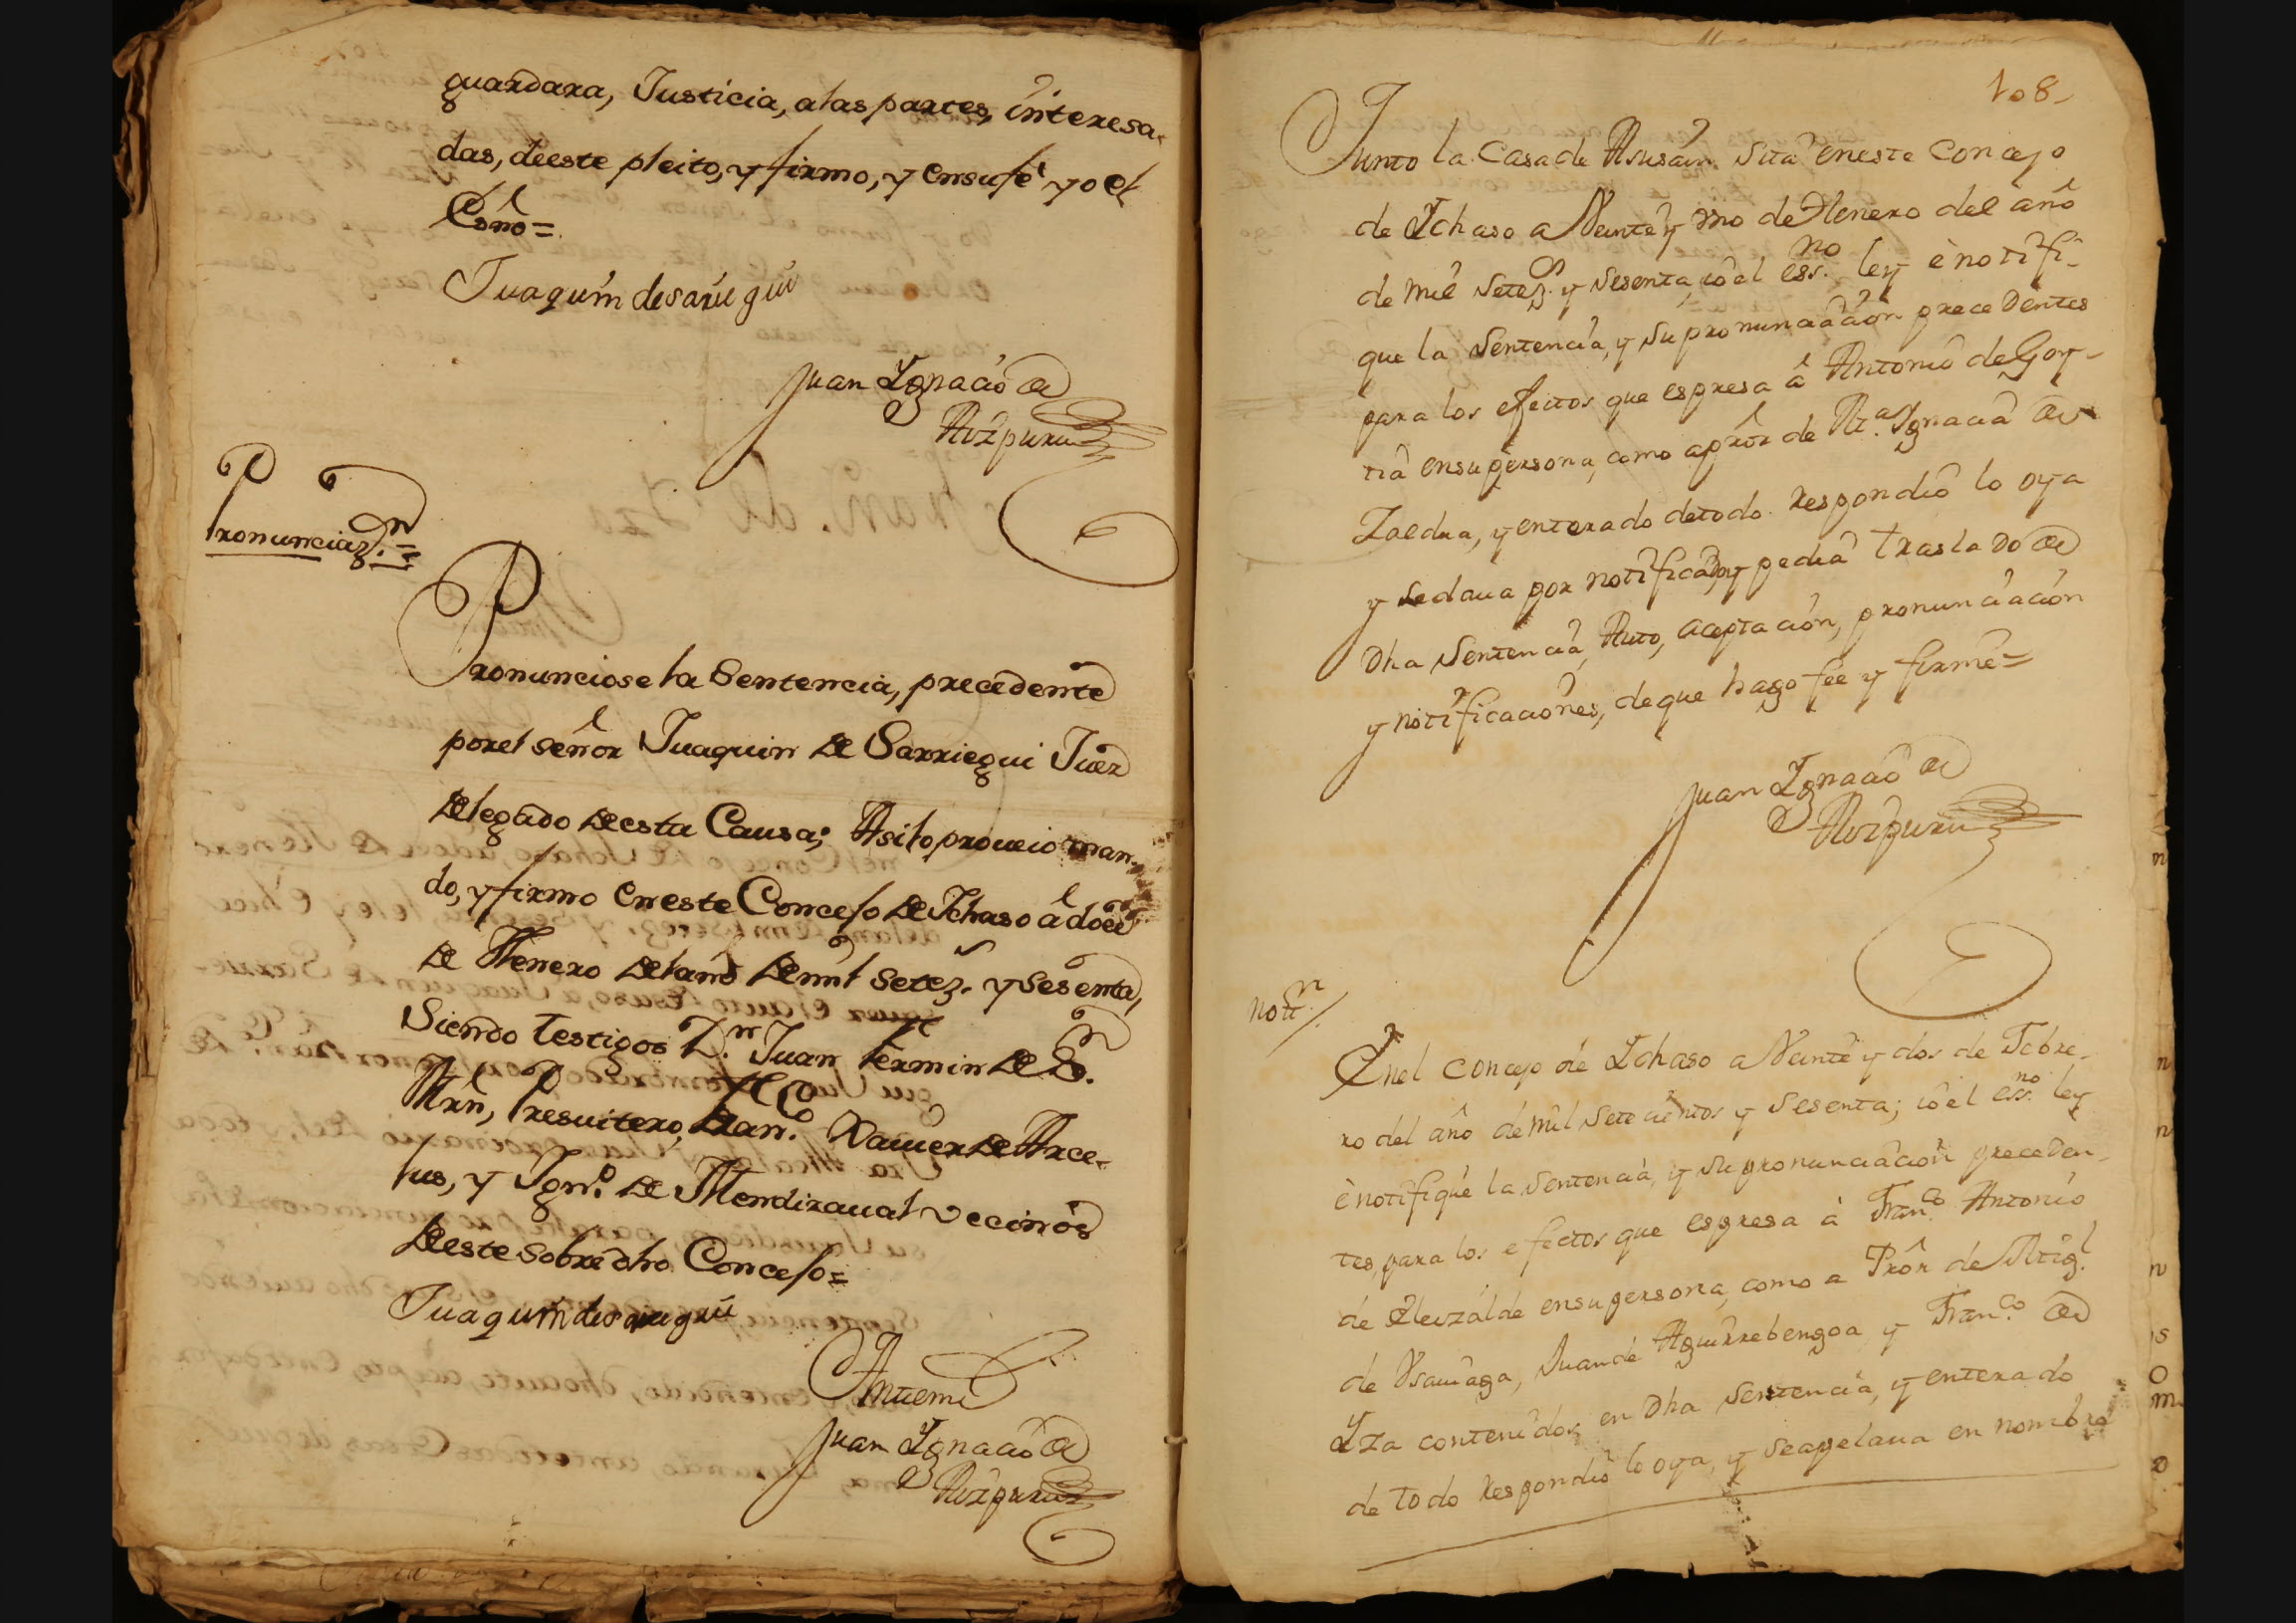 guardara, Justicia, alas partes, interesa-
das, deeste pleito, y firmo, y ensufé yo el
Esno=
Juaquin desariegui
Juan Ygnacio de
Aizpuru
Pronunciaz.n=
Pronunciose la Sentencia, precedente
porel señor Juaquin de Sarriegui Juez
delegado deesta Causa; Asilo proueio man-
do, y firmo eneste Concejo de Ichaso á doce
de Henero delaño demil setez.s y sesenta,
Siendo Testigos D.n Juan Fermin de S.n
Mrn, Presuitero, Fran.co Xauier de Arce-
lus, y Ign.o de Mendizaual vecinos
deeste sobredho Concejo=
Juaquin desariegui
Antemi
Juan Ygnacio de
Aizpuru
108
Junto la Casa de Asusain sita eneste concejo
de Ychaso a Veinte y uno de Henero del año
de mil setez.s y sesenta, io el ess.no ley è notifi-
que la sentencia, y su pronunciación precedentes
para los efectos que espresa â Antonio de Goy-
tia ensu persona, como aprôr de M.a Ygnacia de
Zaldua, y enterado detodo. Respondió lo oya
y sedaua por notificado, y pedia traslado de
Dha Sentencia, Auto, aceptación, pronunciación
y notificaciones, deque hago fee y firmé=
Juan Ygnacio de
Aizpuru
notn./.
Enel concejo de Ychaso a Veinte y dos de Febre-
ro del año de mil setecientos y sesenta; io el ess.no ley
è notifiqué la sentencia, y su pronunciación preceden-
tes, para los efectos que espresa à Fran.co Antonio
de Eleizalde ensu persona, como a Prôr de Mig.l
de Vsauiaga, Juan de Aguirrebengoa, y Fran.co de
Yza contenidos en Dha Sentencia, y enterado
de todo Respondió lo oya, y seapelaua en nombre